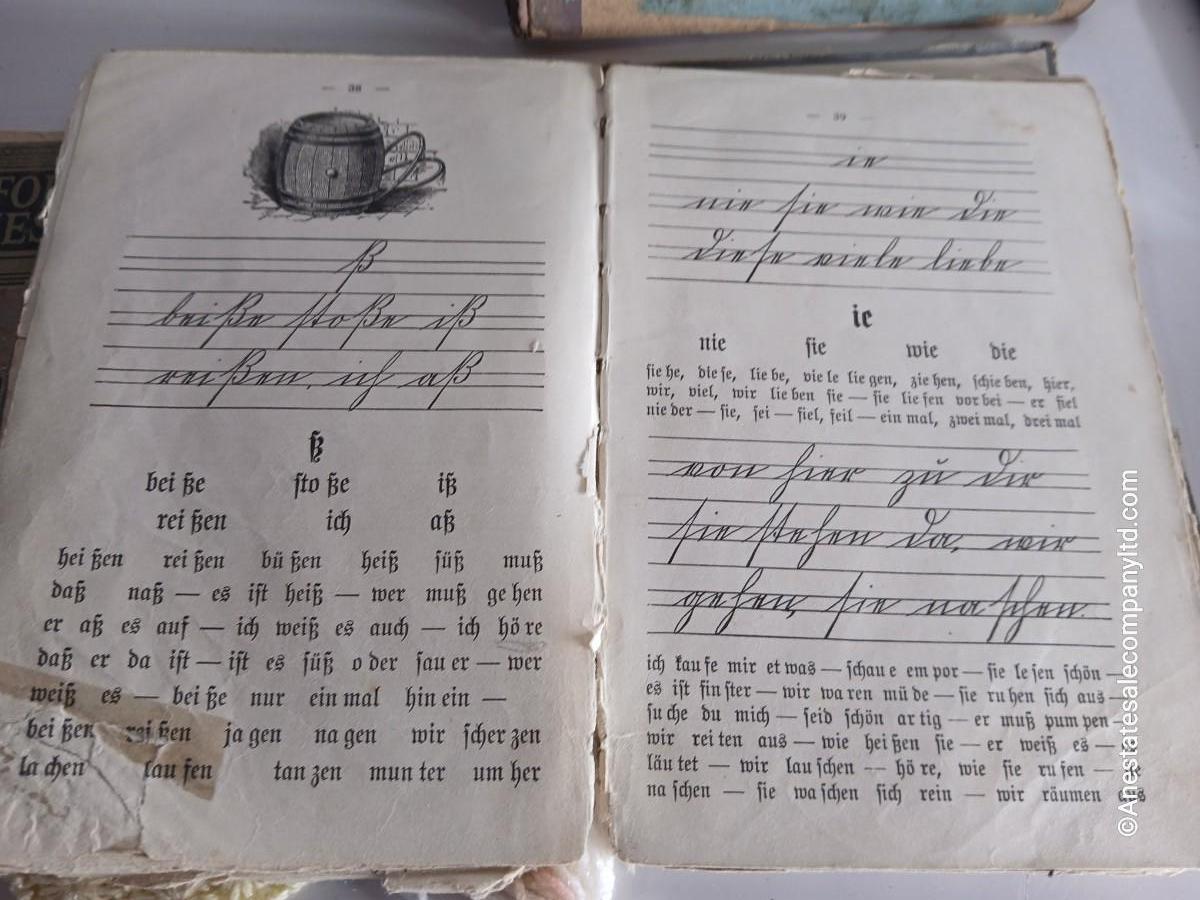 — 38 —
ß
beiße stoße iß
reißen, ich aß
ß
bei ße sto ße iß
rei ßen ich aß
hei ßen rei ßen bü ßen heiß süß muß
daß naß — es ist heiß — wer muß ge hen
er aß es auf — ich weiß es auch — ich hö re
daß er da ist — ist es süß o der sau er — wer
weiß es — bei ße nur ein mal hin ein —
bei ßen rei ßen ja gen na gen wir scher zen
la chen lau fen tan zen mun ter um her
— 39 —
ie
nie sie wie die
diese viele liebe
ie
nie sie wie die
sie he, die se, lie be, vie le lie gen, zie hen, schie ben, hier,
wir, viel, wir lie ben sie — sie lie fen vor bei — er fiel
nie der — sie, sei — fiel, feil — ein mal, zwei mal, drei mal
von hier zu dir
sie stehen da, wir
gehen, sie naschen.
ich kau fe mir et was — schau e em por — sie le sen schön —
es ist fin ster — wir wa ren mü de — sie ru hen sich aus —
su che du mich — seid schön ar tig — er muß pum pen —
wir rei ten aus — wie hei ßen sie — er weiß es —
läu tet — wir lau schen — hö re, wie sie ru fen —
na schen — sie wa schen sich rein — wir räumen aus
©Anestatesalecompanyltd.com